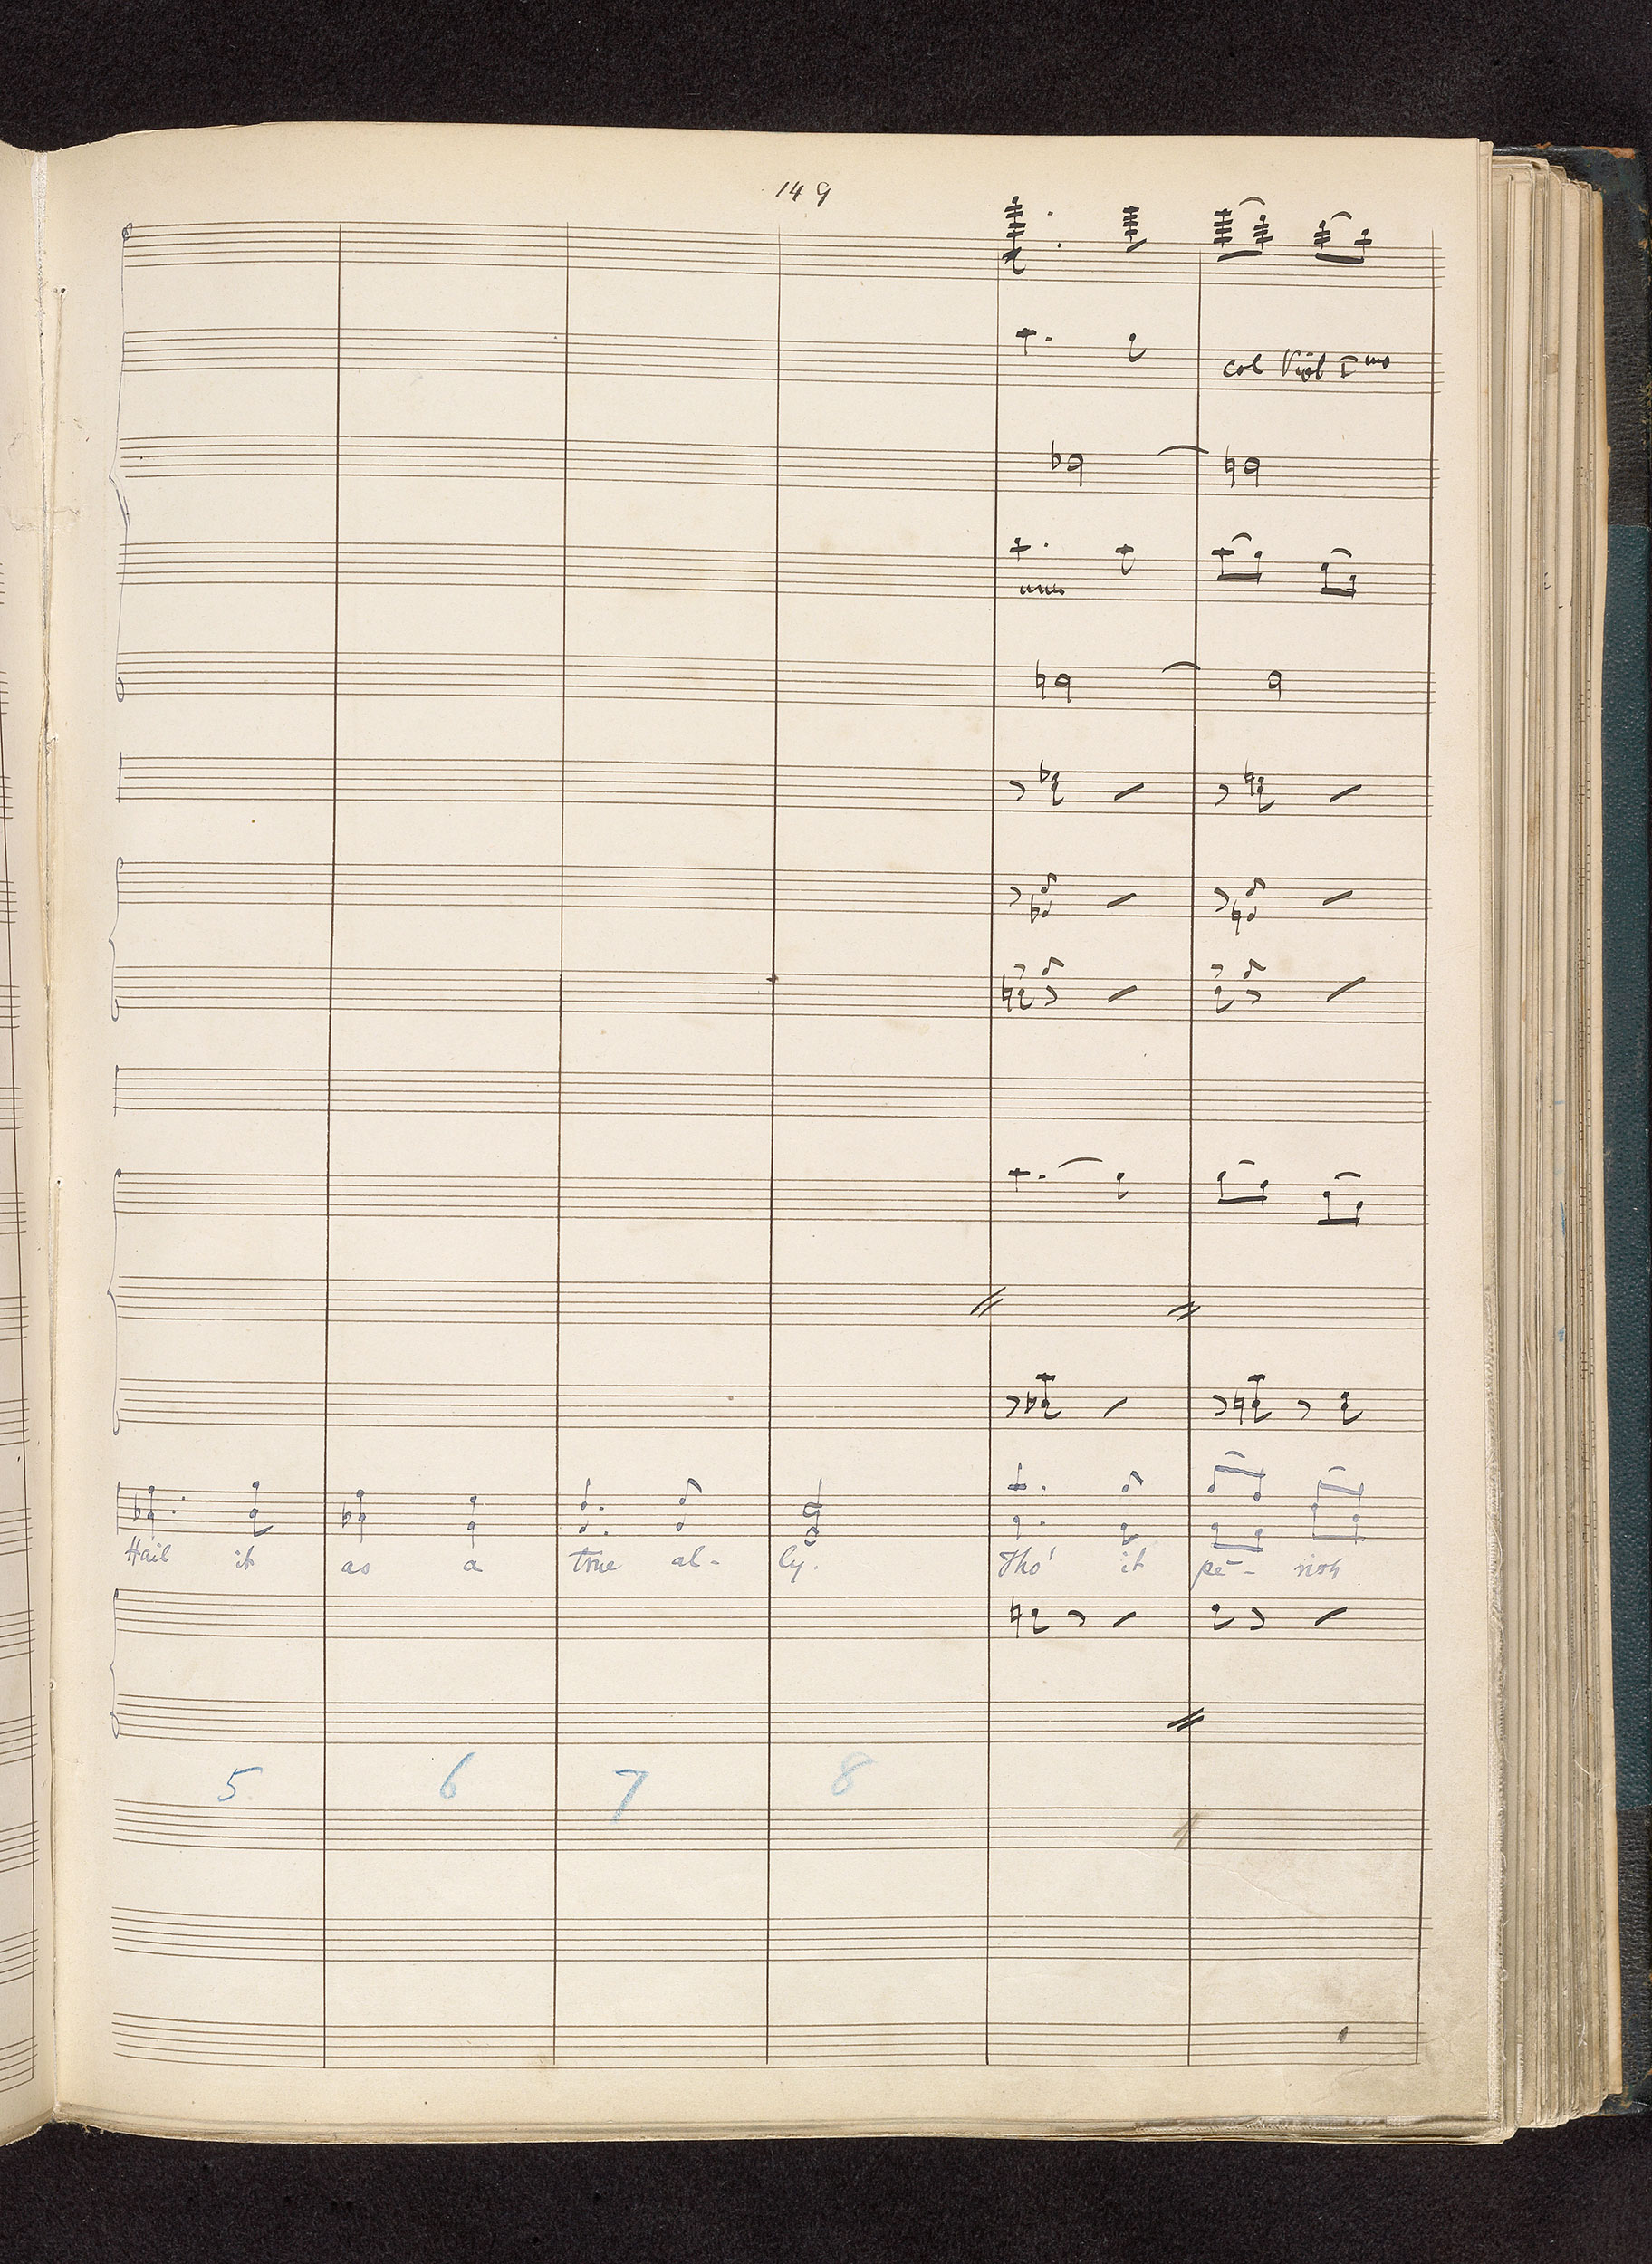 149
col Viol Imo
unis
Hail it as a true al- ly. Tho' it pe- rish
5 6 7 8